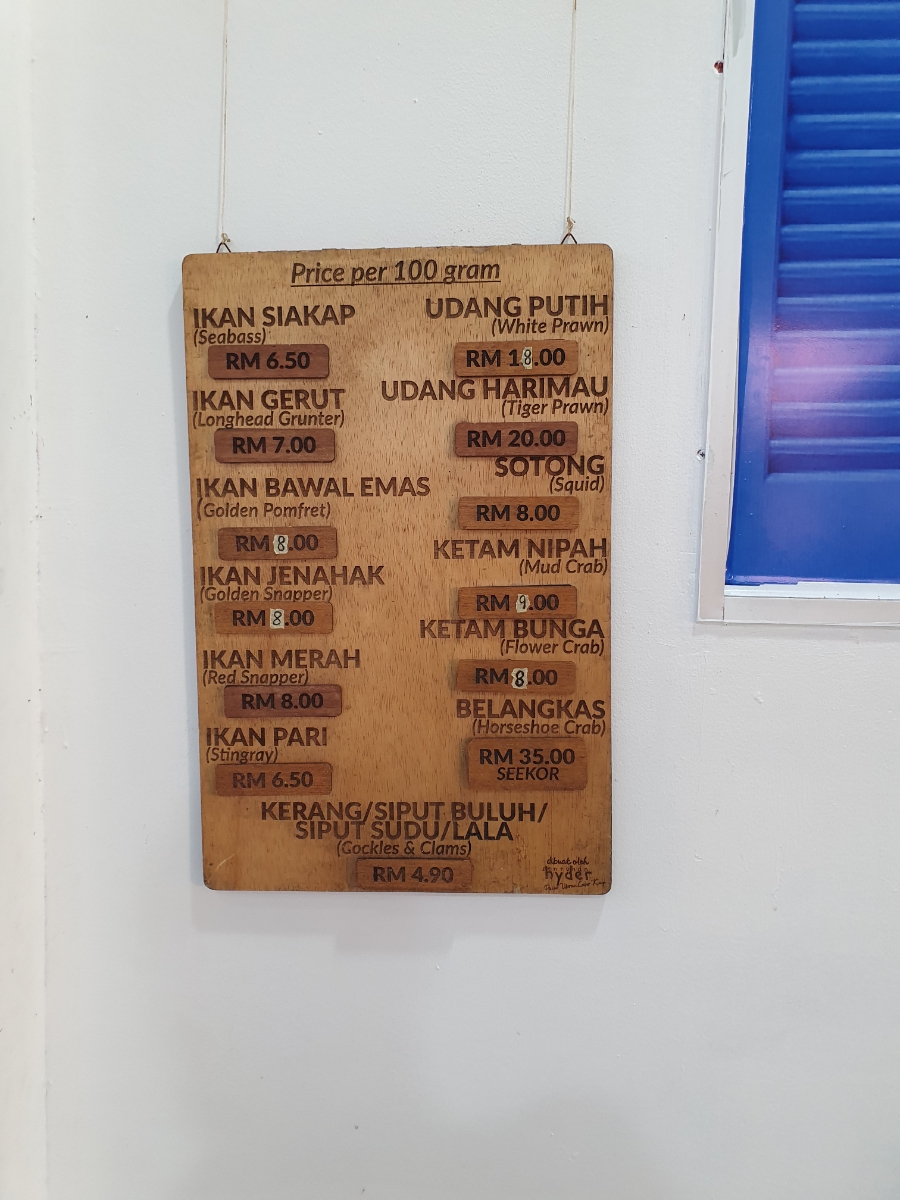 Price per 100 gram
IKAN SIAKAP
(Seabass)
RM 6.50
IKAN GERUT
(Longhead Grunter)
RM 7.00
IKAN BAWAL EMAS
(Golden Pomfret)
RM 8.00
IKAN JENAHAK
(Golden Snapper)
RM 8.00
IKAN MERAH
(Red Snapper)
RM 8.00
IKAN PARI
(Stingray)
RM 6.50
UDANG PUTIH
(White Prawn)
RM 18.00
UDANG HARIMAU
(Tiger Prawn)
RM 20.00
SOTONG
(Squid)
RM 8.00
KETAM NIPAH
(Mud Crab)
RM 9.00
KETAM BUNGA
(Flower Crab)
RM 8.00
BELANGKAS
(Horseshoe Crab)
RM 35.00
SEEKOR
KERANG/SIPUT BULUH/
SIPUT SUDU/LALA
(Gockles & Clams)
RM 4.90
dibuat oleh
hyder